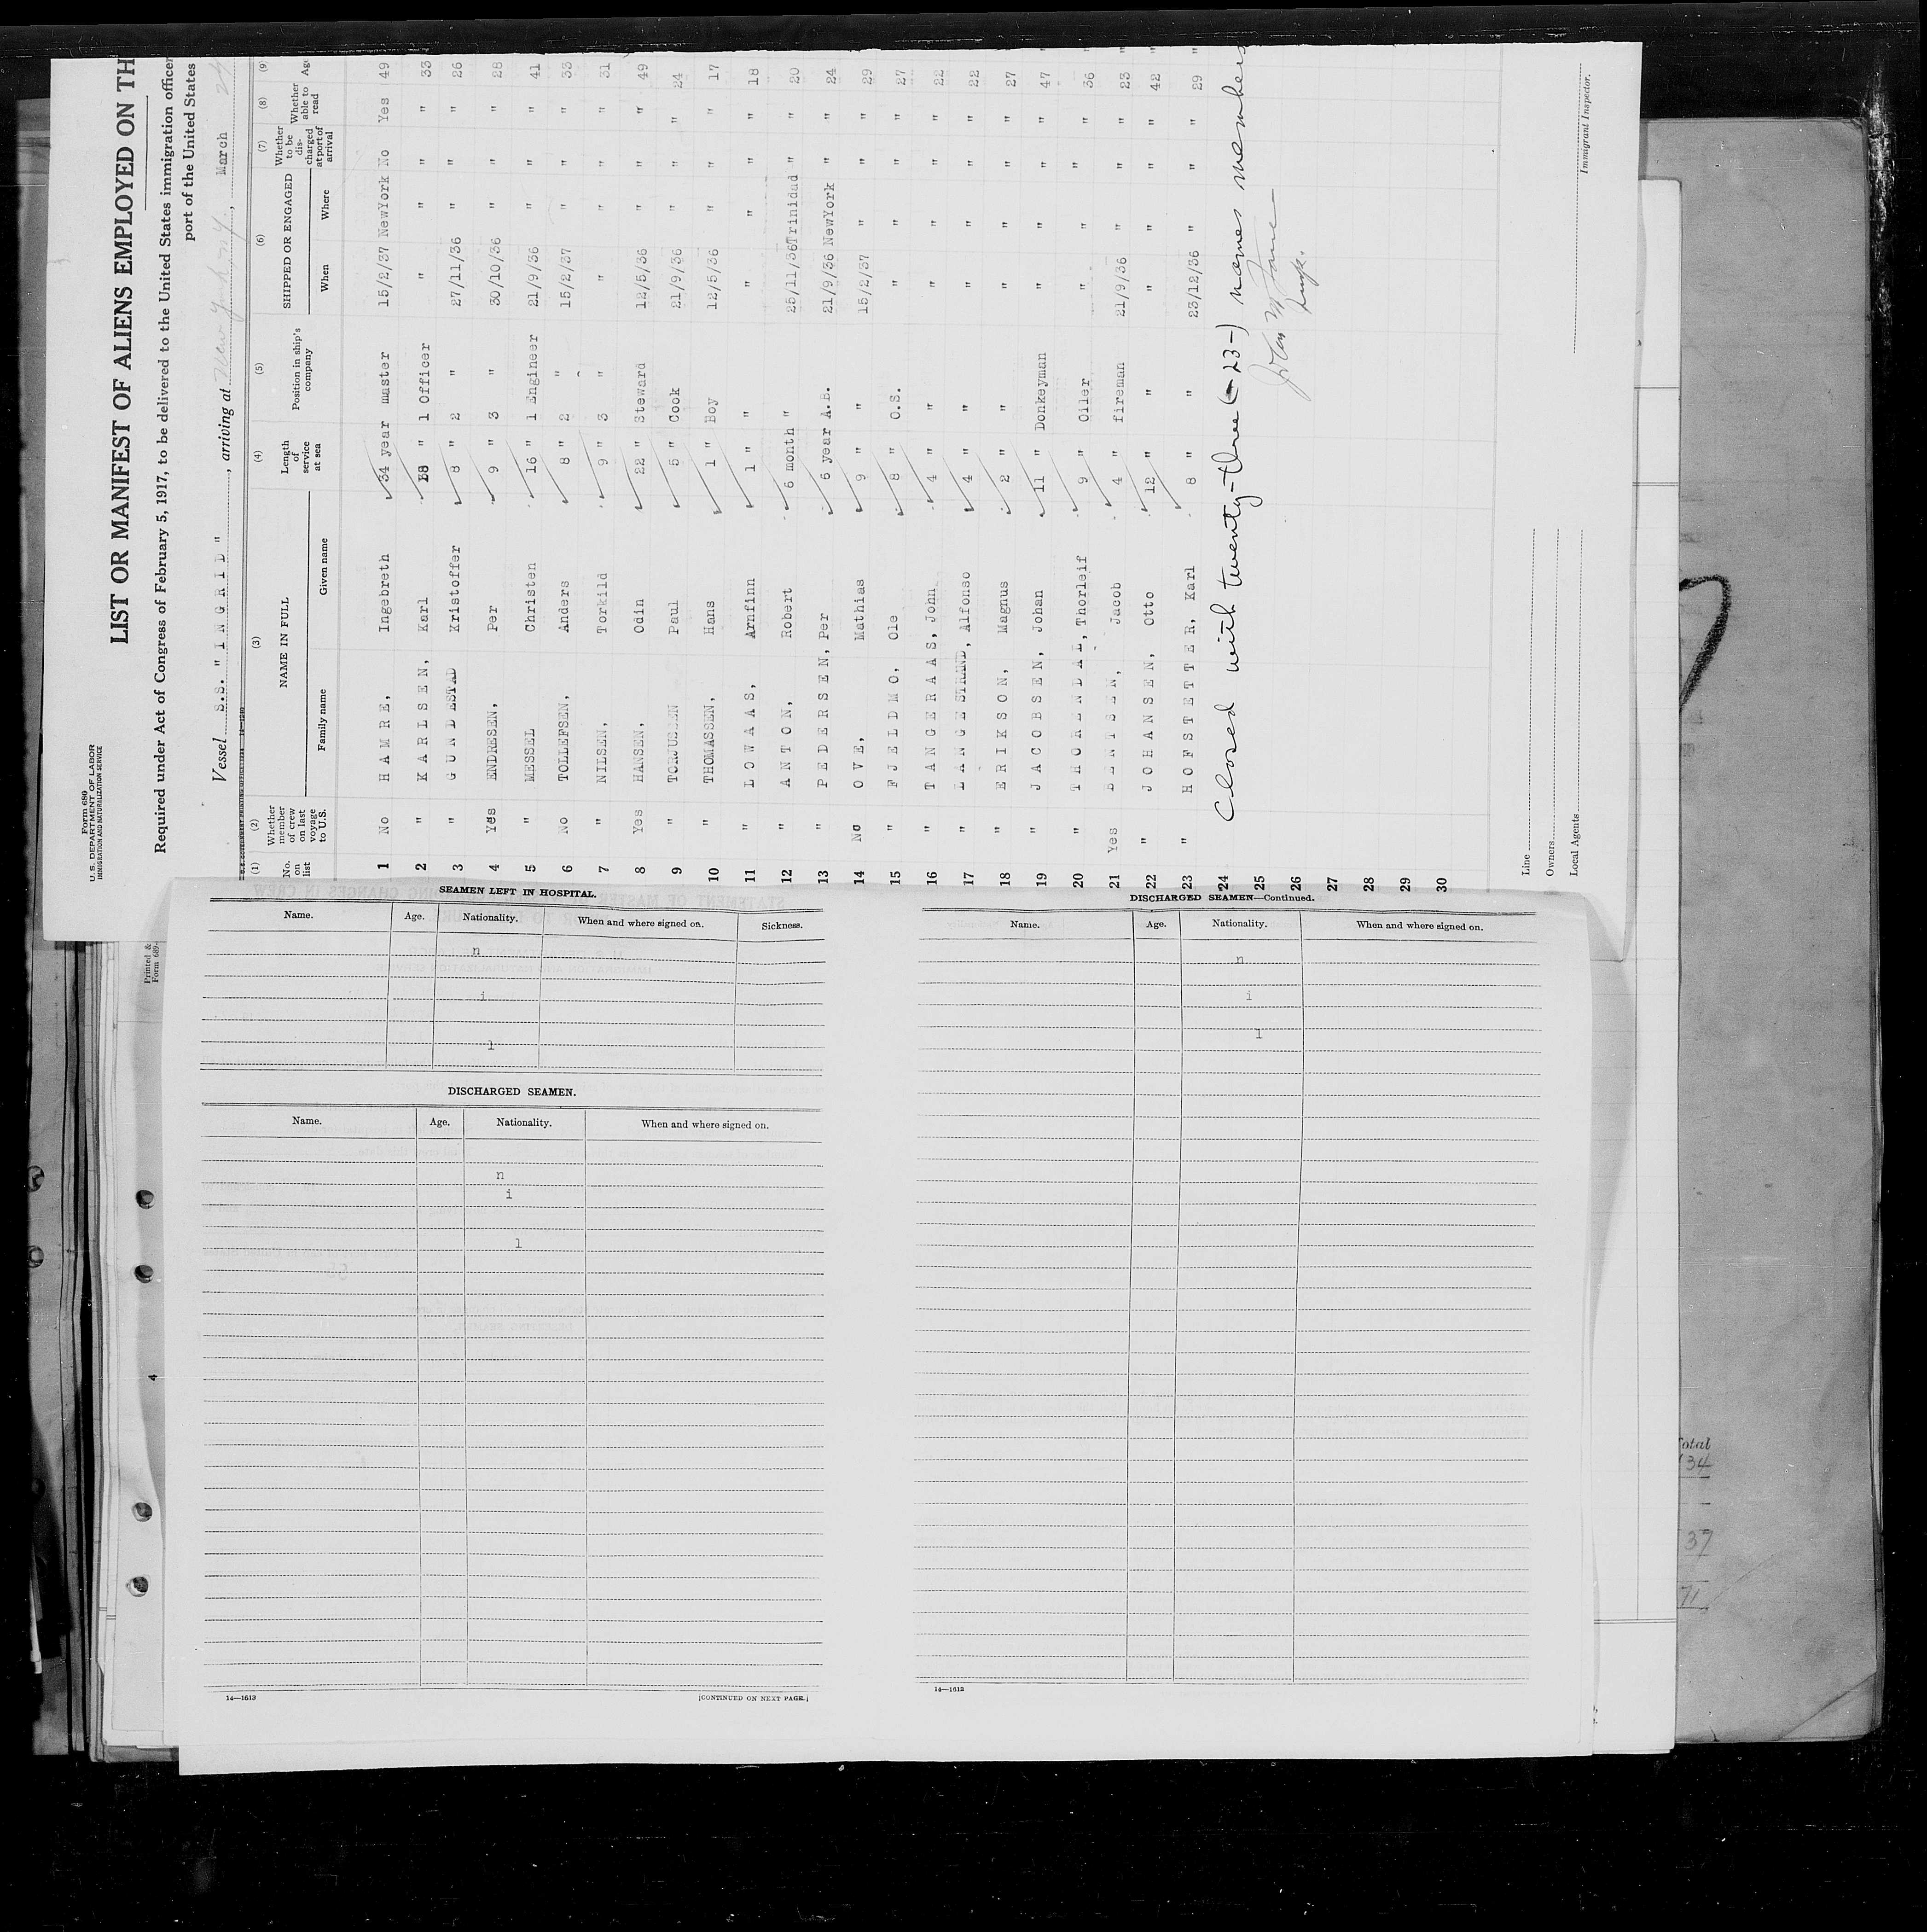 Form 680
U.S. DEPARTMENT OF LABOR
IMMIGRATION AND NATURALIZATION SERVICE
LIST OR MANIFEST OF ALIENS EMPLOYED ON TH
Required under Act of Congress of February 5, 1917, to be delivered to the United States immigration officer
port of the United States
Vessel S.S. "INGRID", arriving at New York, N.Y., March 24
(1) (2) (3) (4) (5) (6) (7) (8) (9)
No. on list Whether member of crew on last voyage to U.S. NAME IN FULL Family name Given name Length of service at sea Position in ship's company SHIPPED OR ENGAGED When Where Whether to be discharged at port of arrival Whether able to read Age
1 No HAMRE, Ingebreth 34 year master 15/2/37 NewYork No Yes 49
2 " KARLSEN, Karl " 1 Officer " " " " 33
3 " GUNDESTAD Kristoffer 8 " 2 " 27/11/36 " " " 26
4 Yes ENDRESEN, Per 9 " 3 " 30/10/36 " " " 28
5 " MESSEL Christen 16 " 1 Engineer 21/9/36 " " " 41
6 No TOLLEFSEN, Anders 8 " 2 " 15/2/37 " " " 33
7 " NILSEN, Torkild 9 " 3 " " " " " 31
8 Yes HANSEN, Odin 22 " Steward 12/5/36 " " " 49
9 " TORJUSSEN Paul 5 " Cook 21/9/36 " " " 24
10 " THOMASSEN, Hans 1 " Boy 12/5/36 " " " 17
11 " LOWAAS, Arnfinn 1 " " " " " " 18
12 " ANTON, Robert 6 month " 25/11/36 Trinidad " " 20
13 " PEDERSEN, Per 6 year A.B. 21/9/36 NewYork " " 24
14 No OVE, Mathias 9 " " 15/2/37 " " " 29
15 " FJELDMO, Ole 8 " O.S. " " " " 27
16 " TANGERAAS, John 4 " " " " " " 22
17 " LANGESTRAND, Alfonso 4 " " " " " " 22
18 " ERIKSON, Magnus 2 " " " " " " 27
19 " JACOBSEN, Johan 11 " Donkeyman " " " " 47
20 " THORENDAL, Thorleif 9 " Oiler " " " " 36
21 Yes BENTSEN, Jacob 4 " fireman 21/9/36 " " " 23
22 " JOHANSEN, Otto 12 " " " " " " 42
23 " HOFSTETTER, Karl 8 " " 23/12/36 " " " 29
24
25
26
27
28
29
30
Closed with twenty-three (-23-) names members
Insp.
Line
Owners
Local Agents
Immigrant Inspector.
Printed &
Form 689-
4
SEAMEN LEFT IN HOSPITAL.
Name. Age. Nationality. When and where signed on. Sickness.
n
i
l
DISCHARGED SEAMEN.
Name. Age. Nationality. When and where signed on.
n
i
l
14—1613
[CONTINUED ON NEXT PAGE.]
DISCHARGED SEAMEN—Continued.
Name. Age. Nationality. When and where signed on.
n
i
l
14—1613
Total
34
37
71